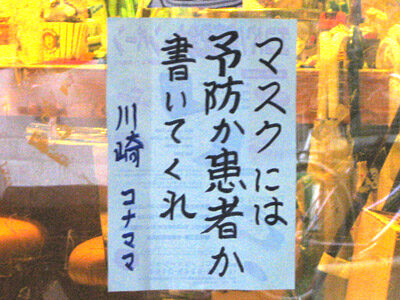 マスクには
予防か患者か
書いてくれ
川崎 コナママ